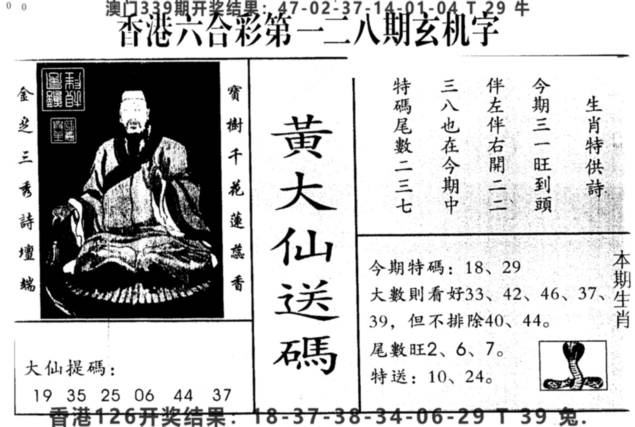 澳门339期开奖结果：47-02-37-14-01-04 T 29 牛
香港六合彩第一二八期玄机字
金芝三秀詩壇端
寶樹千花蓮蕊香
大仙提碼：
19 35 25 06 44 37
黃大仙送碼
生肖特供詩
今期三一旺到頭
伴左伴右開二二
三八也在今期中
特碼尾數二三七
今期特碼：18、29
大數則看好33、42、46、37、
39，但不排除40、44。
尾數旺2、6、7。
特送：10、24。
本期生肖
香港126开奖结果：18-37-38-34-06-29 T 39 兔.